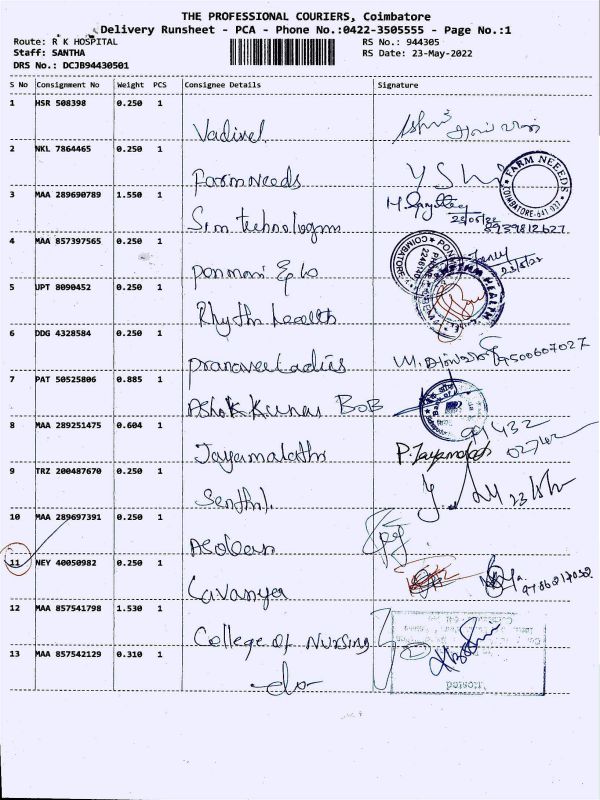 THE PROFESSIONAL COURIERS, Coimbatore
Delivery Runsheet - PCA - Phone No.:0422-3505555 - Page No.:1
Route: R K HOSPITAL RS No.: 944305
Staff: SANTHA RS Date: 23-May-2022
DRS No.: DCJB94430501
S No Consignment No Weight PCS Consignee Details Signature
1 HSR 508398 0.250 1
Vadivel
2 NKL 7864465 0.250 1
Farmneeds
FARM NEEEDS COIMBATORE-641 937
3 MAA 289690789 1.550 1
23/05/22
8939812627
Sim technologm
4 MAA 857397565 0.250 1
COIMBATORE
23/5/22
5 UPT 8090452 0.250 1
Rhythm health
6 DDG 4328584 0.250 1
9500607027
7 PAT 50525806 0.885 1
Ashok Kumar BOB
8 MAA 289251475 0.604 1
Jayamalathi P. Jayamalathi
9 TRZ 200487670 0.250 1
Senthil
10 MAA 289697391 0.250 1
11 NEY 40050982 0.250 1
Lavanya
12 MAA 857541798 1.530 1
College of Nursing
13 MAA 857542129 0.310 1
-do-